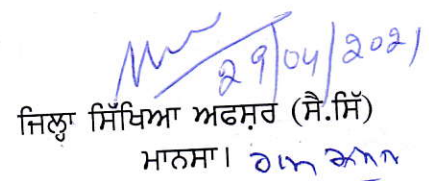 29/04/2021
ਜਿਲ੍ਹਾ ਸਿੱਖਿਆ ਅਫਸ਼ਰ (ਸੈ.ਸਿੱ)
ਮਾਨਸਾ।